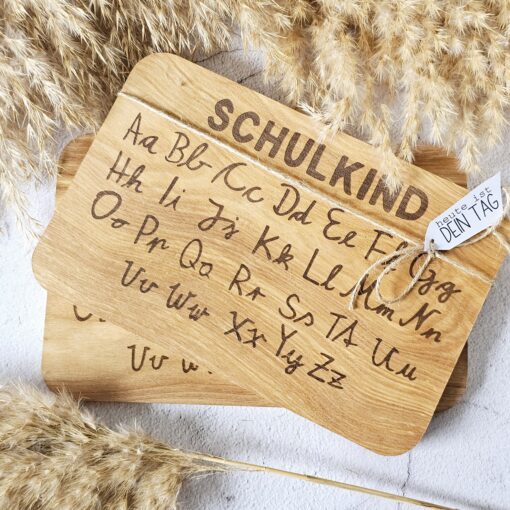 SCHULKIND
Aa Bb Cc Dd Ee Ff Gg
Hh Ii Jj Kk Ll Mm Nn
Oo Pp Qq Rr Ss Tt Uu
Vv Ww Xx Yy Zz
heute ist
DEIN TAG
Vv